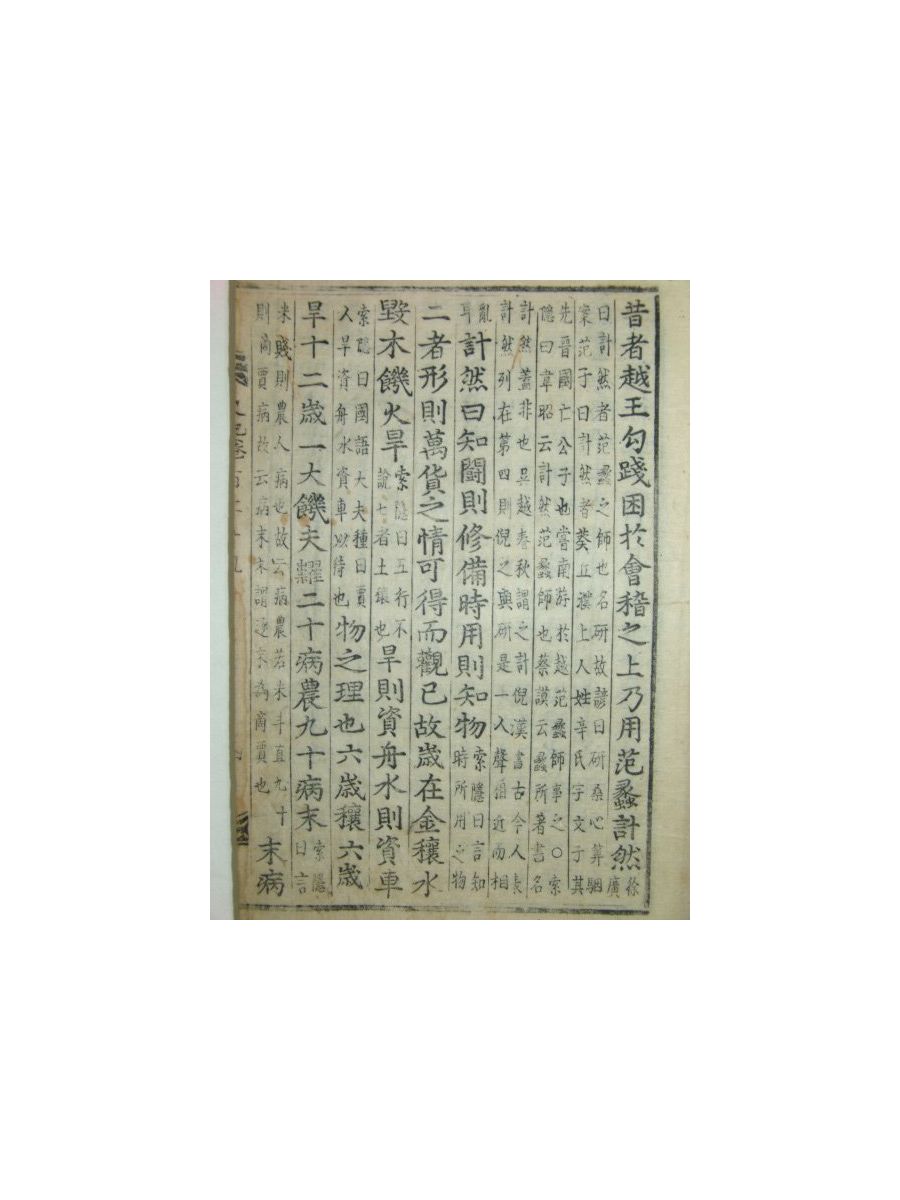 昔者越王勾踐困於會稽之上乃用范蠡計然徐廣
曰計然者范蠡之師也名研故諺曰研桑心筭駰
案范子曰計然者葵丘濮上人姓辛氏字文子其
先晉國亡公子也嘗南游於越范蠡師事之○索
隱曰韋昭云計然范蠡師也蔡謨云蠡所著書名
計然蓋非也且越春秋謂之計倪漢書古今人表
計然列在第四則倪之與研是一人聲相近而相
亂耳計然曰知鬬則修備時用則知物索隱曰言知時所用之物
二者形則萬貨之情可得而觀已故歲在金穰水
毀木饑火旱索隱曰五行不說七者土穰也旱則資舟水則資車
索隱曰國語大夫種曰賈人旱資舟水資車以待也物之理也六歲穰六歲
旱十二歲一大饑夫糶二十病農九十病末索隱曰言
米賤則農人病也故云病農若米斗直九十則商賈病故云病末末謂逐末為商賈也末病